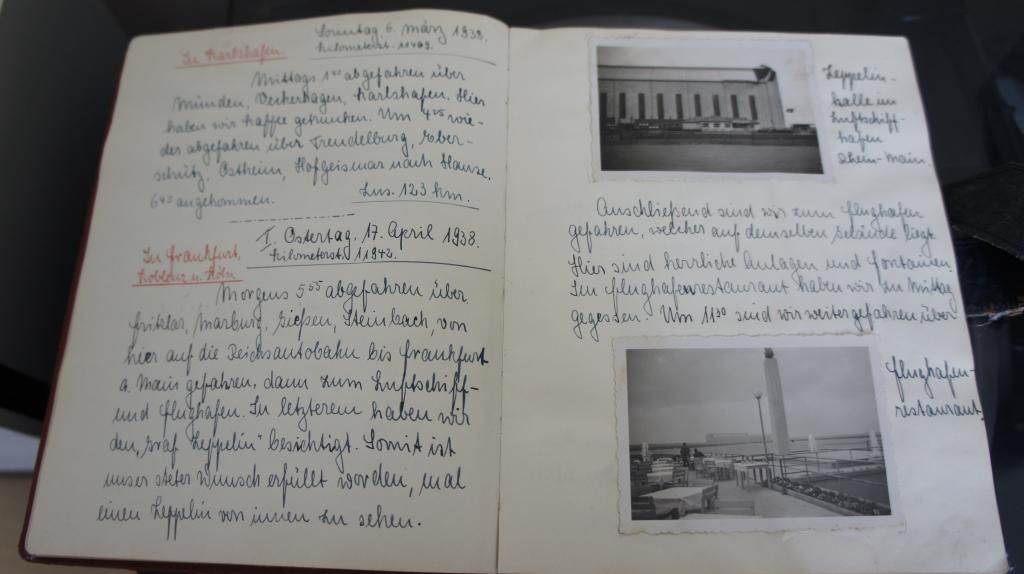 In Karlshafen.
Sonntag, 6. März 1938.
Kilometerst. 11499.
Mittags 1⁰⁰ abgefahren über
Münden, Veckerhagen, Karlshafen. Hier
haben wir Kaffee getrunken. Um 4²⁵ wie-
der abgefahren über Trendelburg, Eber-
schütz, Ostheim, Hofgeismar nach Hause.
6⁴⁵ angekommen.
Zus. 123 km.
In Frankfurt,
Koblenz u. Köln.
I. Ostertag, 17. April 1938.
Kilometerst. 11942.
Morgens 5⁵⁵ abgefahren über
Fritzlar, Marburg, Gießen, Steinbach, von
hier auf die Reichsautobahn bis Frankfurt
a. Main gefahren, dann zum Luftschiff-
und Flughafen. In letzterem haben wir
den „Graf Zeppelin" besichtigt. Somit ist
unser steter Wunsch erfüllt worden, mal
einen Zeppelin von innen zu sehen.
Zeppelin-
halle im
Luftschiff-
hafen
Rhein-Main.
Anschließend sind wir zum Flughafen
gefahren, welcher auf demselben Gelände liegt.
Hier sind herrliche Anlagen und Fontainen.
Im Flughafenrestaurant haben wir zu Mittag
gegessen. Um 11³⁰ sind wir weitergefahren über
Flughafen-
restaurant.